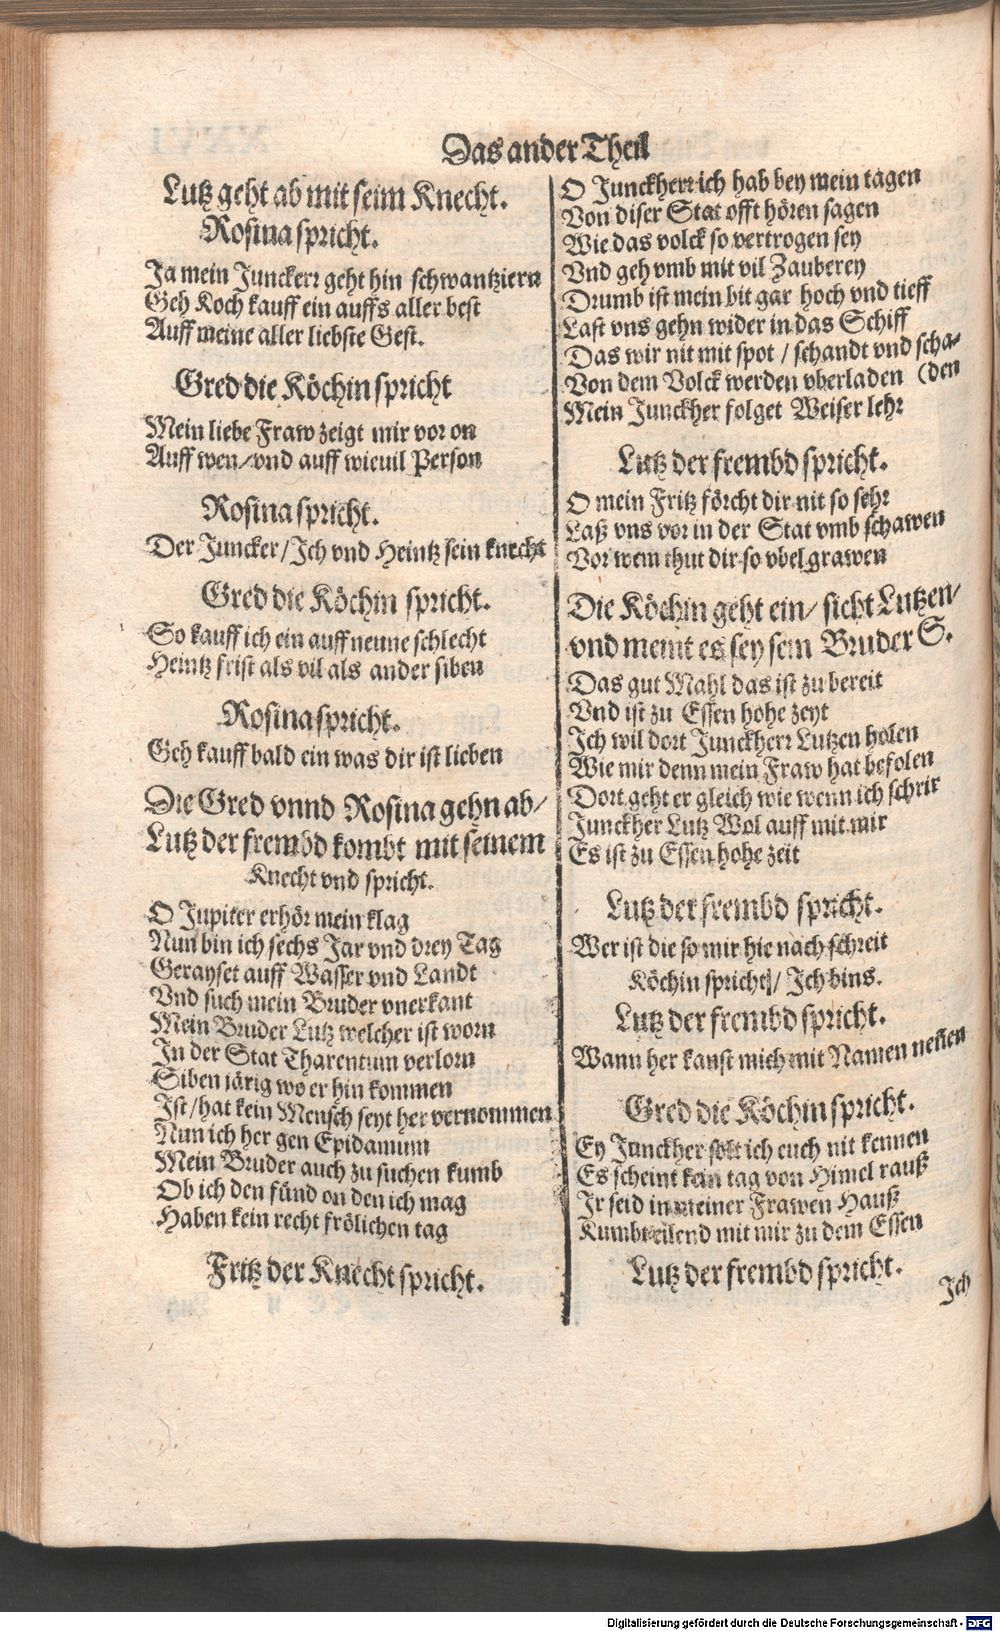 Das ander Theil
Lutz geht ab mit seim Knecht.
Rosina spricht.
Ja mein Junckerr geht hin schwantziern
Geh Koch kauff ein auffs aller best
Auff meine aller liebste Gest.
Gred die Köchin spricht
Mein liebe Fraw zeigt mir vor on
Auff wen/vnd auff wieuil Person
Rosina spricht.
Der Juncker/Ich vnd Heintz sein knecht
Gred die Köchin spricht.
So kauff ich ein auff neune schlecht
Heintz frist als vil als ander siben
Rosina spricht.
Geh kauff bald ein was dir ist lieben
Die Gred vnnd Rosina gehn ab/
Lutz der frembd kombt mit seinem
Knecht vnd spricht.
O Jupiter erhör mein klag
Nun bin ich sechs Jar vnd drey Tag
Gerayset auff Wasser vnd Landt
Vnd such mein Bruder vnerkant
Mein Bruder Lutz welcher ist worn
In der Stat Tharentum verlorn
Siben järig wo er hin kommen
Ist/hat kein Mensch seyt her vernommen
Nun ich her gen Epidamum
Mein Bruder auch zu suchen kumb
Ob ich den fünd on den ich mag
Haben kein recht frölichen tag
Fritz der Knecht spricht.
O Junckherr ich hab bey mein tagen
Von diser Stat offt hören sagen
Wie das volck so vertrogen sey
Vnd geh vmb mit vil Zauberey
Drumb ist mein bit gar hoch vnd tieff
Last vns gehn wider in das Schiff
Das wir nit mit spot / schandt vnd scha-
Von dem Volck werden vberladen (den
Mein Junckher folget Weiser lehr
Lutz der frembd spricht.
O mein Fritz förcht dir nit so sehr
Laß vns vor in der Stat vmb schawen
Vor wem thut dir so vbel grawen
Die Köchin geht ein/ sicht Lutzen/
vnd meint es sey sein Bruder S.
Das gut Mahl das ist zu bereit
Vnd ist zu Essen hohe zeyt
Ich wil dort Junckherr Lutzen holen
Wie mir denn mein Fraw hat befolen
Dort geht er gleich wie wenn ich schrir
Junckher Lutz Wol auff mit mir
Es ist zu Essen hohe zeit
Lutz der frembd spricht.
Wer ist die so mir hie nach schreit
Köchin spricht/ Ich bins.
Lutz der frembd spricht.
Wann her kanst mich mit Namen neñen
Gred die Köchin spricht.
Ey Junckher solt ich euch nit kennen
Es scheint kein tag von Himel rauß
Ir seid in meiner Frawen Hauß
Kumbt eilend mit mir zu dem Essen
Lutz der frembd spricht.
Ich
Digitalisierung gefördert durch die Deutsche Forschungsgemeinschaft - DFG